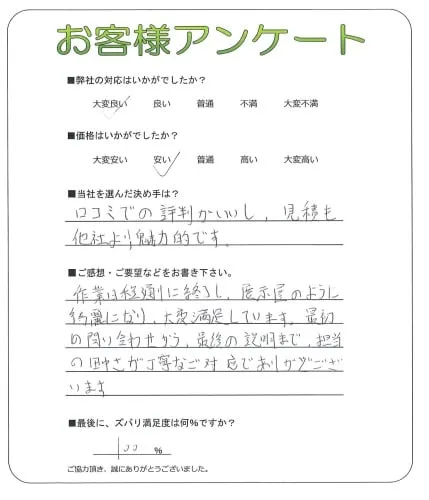 お客様アンケート
■弊社の対応はいかがでしたか？
大変良い 良い 普通 不満 大変不満
■価格はいかがでしたか？
大変安い 安い 普通 高い 大変高い
■当社を選んだ決め手は？
口コミでの評判がいいし、見積も
他社より魅力的です。
■ご感想・ご要望などをお書き下さい。
作業は順調に終了し、展示屋のように
綺麗になり、大変満足しています。最初
の問い合わせから、最後の説明まで、担当
の田中さが丁寧なご対応でありがとうござ
います
■最後に、ズバリ満足度は何%ですか？
100 %
ご協力頂き、誠にありがとうございました。